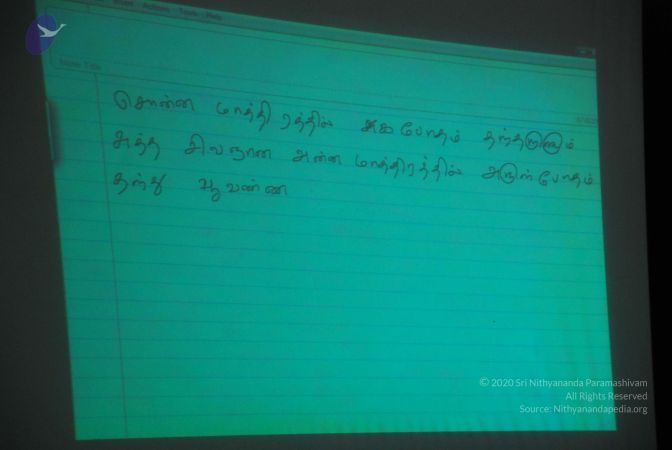 Actions Tools Help
Note Title
சொன்ன மாத்திரத்தில் சுக போதம் தந்தருளும்
அத்த சிவஞான அன்ன மாத்திரத்தில் அருள் போதம்
தந்து பூவண்ண
© 2020 Sri Nithyananda Paramashivam
All Rights Reserved
Source: Nithyanandapedia.org